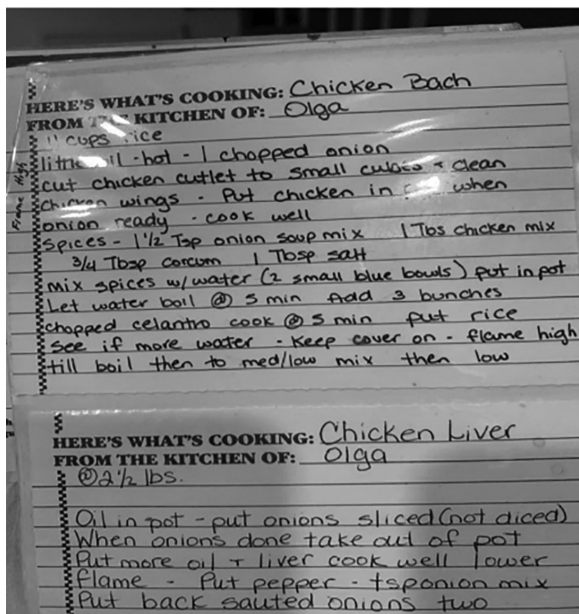 HERE'S WHAT'S COOKING: Chicken Bach
FROM THE KITCHEN OF: Olga
cups rice
oil - hot - 1 chopped onion
cut chicken cutlet to small cubis + clean
chicken wings - Put chicken in when
onion ready - cook well
Spices - 1 1/2 Tsp onion soup mix 1 Tbs chicken mix
3/4 Tbsp corcum 1 Tbsp salt
mix spices w/water (2 small blue bowls) put in pot
Let water boil @ 5 min Add 3 bunches
chopped celantro cook @ 5 min put rice
See if more water - Keep cover on - flame high
till boil then to med/low mix then low
Flame High
HERE'S WHAT'S COOKING: Chicken Liver
FROM THE KITCHEN OF: Olga
@2 1/2 lbs.
Oil in pot - put onions sliced (not diced)
When onions done take out of pot
Put more oil + liver cook well lower
flame - Put pepper - tsponion mix
Put back sauted onions two